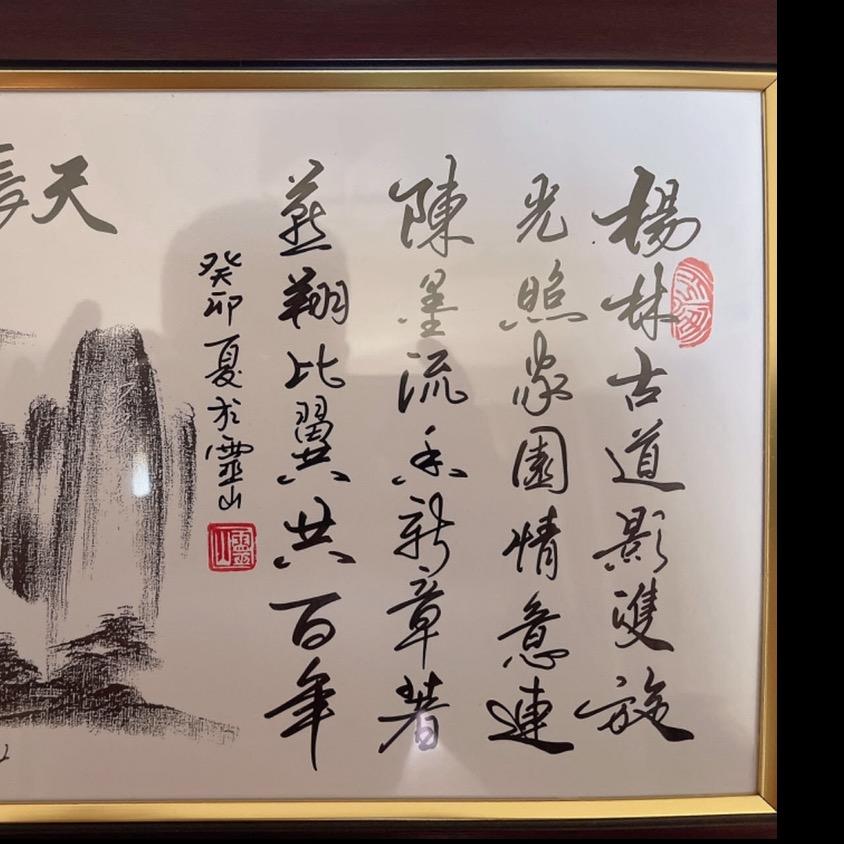 楊林古道影雙旋
光照家園情意連
陳墨流香新章著
燕翔比翼共百年
癸卯夏於靈山
靈山
天長